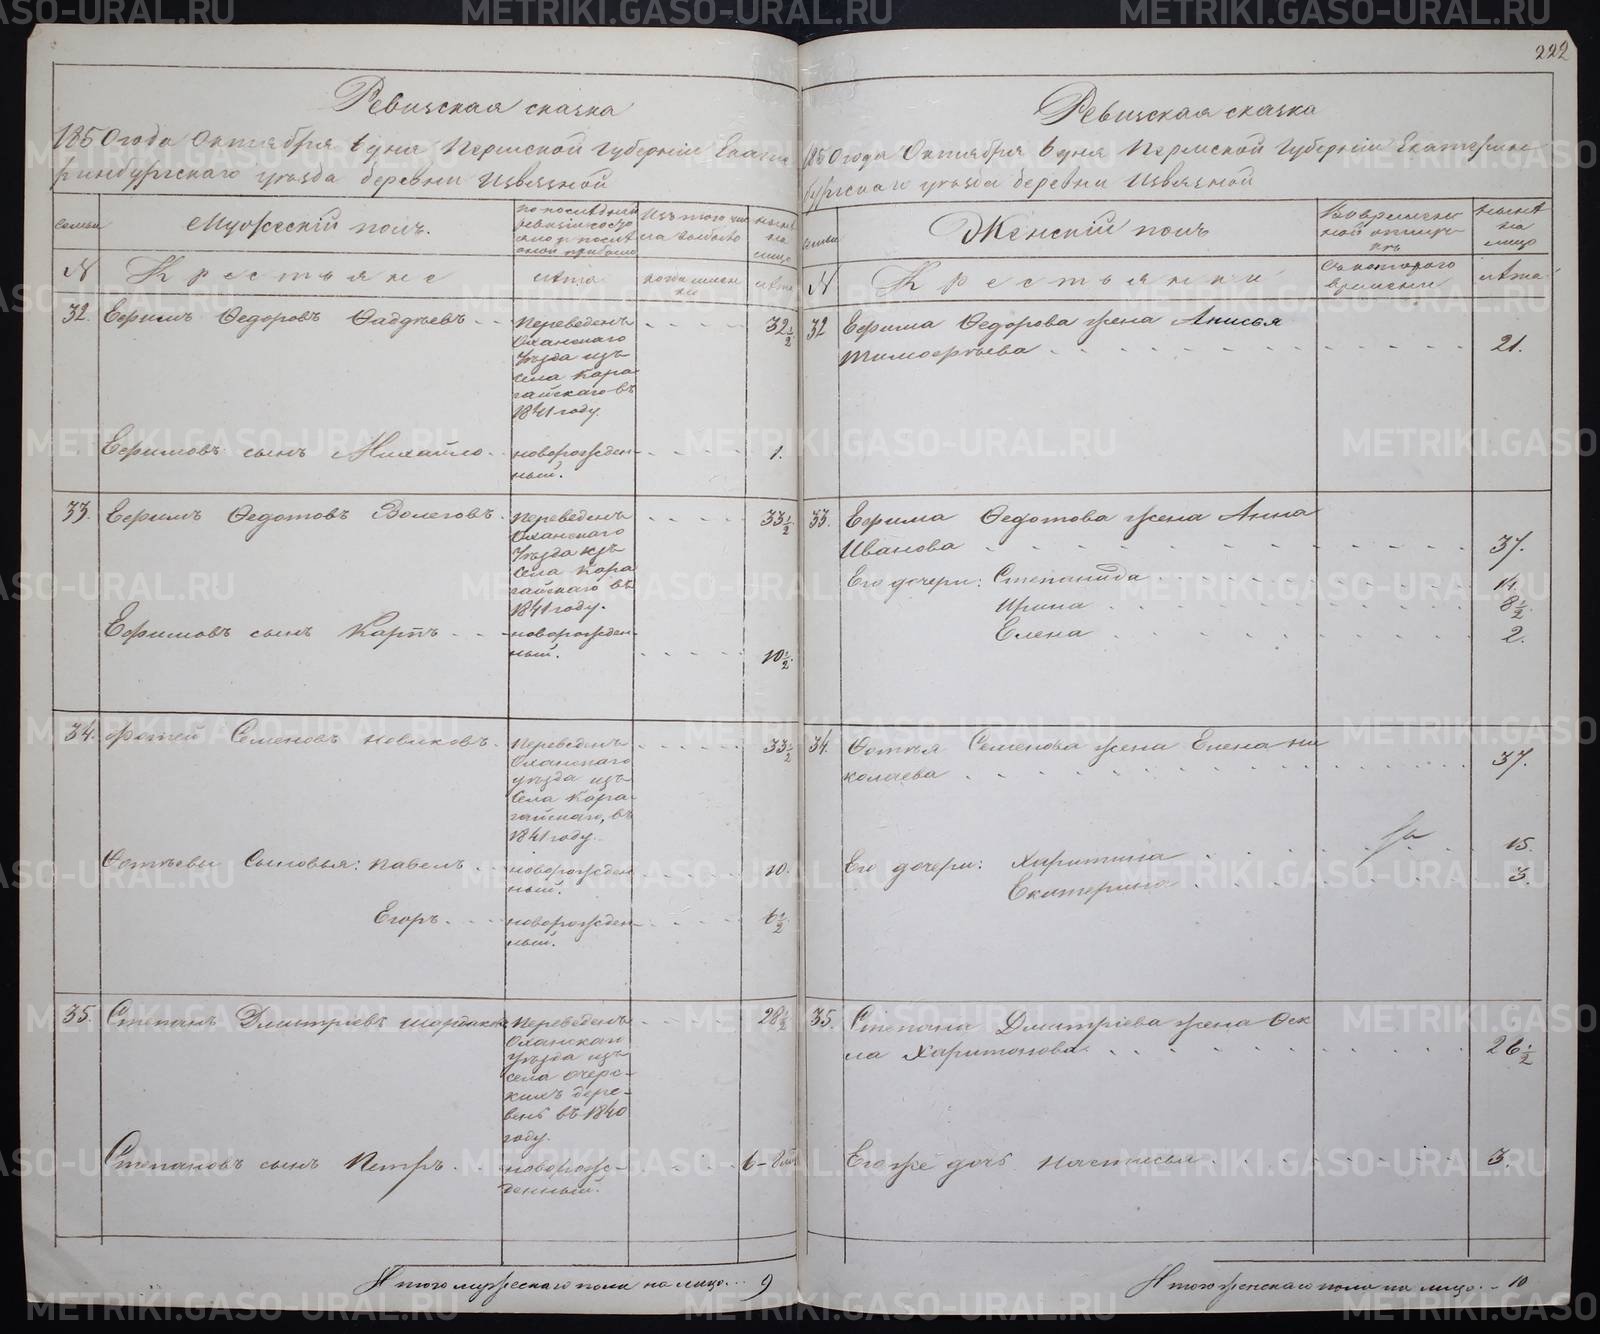 222
Ревизская сказка
1850 года Октября 6 дня Пермской Губернии Екате
ринбургскаго уѣзда деревни Извязной
семьи
Мужескій полъ.
по послѣдней
ревизіи состо
яло и послѣ
оной прибыло
Изъ того чис
ла выбыло
нынѣ
на
лицо
N
Крестьяне
лѣта
когда имен
но
лѣта
32. Ефимъ Федоровъ Фаддѣевъ
Переведенъ
Оханскаго
Уѣзда изъ
села Кара
гайскаго въ
1841 году.
32 1/2
Ефимовъ сынъ Михайло
новорожден-
ный.
1.
33. Ефимъ Федотовъ Волеговъ
Переведенъ
Оханскаго
Уѣзда изъ
Села Кара
гайскаго въ
1841 году.
33 1/2
Ефимовъ сынъ Карпъ
новорожден-
ный.
10 1/2
34. Фотей Семеновъ Новиковъ
Переведенъ
Оханскаго
уѣзда изъ
Села Кара
гайскаго, въ
1841 году.
33 1/2
Фотѣевы Сыновья: Павелъ
новорожден
ный.
10.
Егоръ
новорожден-
ный.
6 1/2
35. Степанъ Дмитріевъ
Переведенъ
Оханскаго
Уѣзда изъ
села Очерс-
кихъ дере-
вень въ 1840
году.
28 1/2
Степановъ сынъ Петръ
новорож-
денный.
Итого мужескаго пола на лицо 9
Ревизская сказка
1850 года Октября 6 дня Пермской Губерніи Екатерин
бургскаго уѣзда деревни Извязной
семьи
Женскій полъ
Во времен
ной отлуч-
кѣ
нынѣ
на
лицо
N
Крестьянки
Съ котораго
времени
лѣта
32 Ефима Федорова жена Анисья
Тимофѣева 21.
33. Ефима Федотова жена Анна
Иванова 37.
Его дочери: Степанида 14.
Ирина 8 1/2
Елена 2.
34. Фотѣя Семенова жена Елена Ни
колаева 37.
Его дочери: Харитина 15.
Екатерина 3.
35. Степана Дмитріева жена Фек
ла Харитонова 26 1/2
Его же дочь Настасья 3.
Итого женскаго пола на лицо 10
METRIKI.GASO-URAL.RU